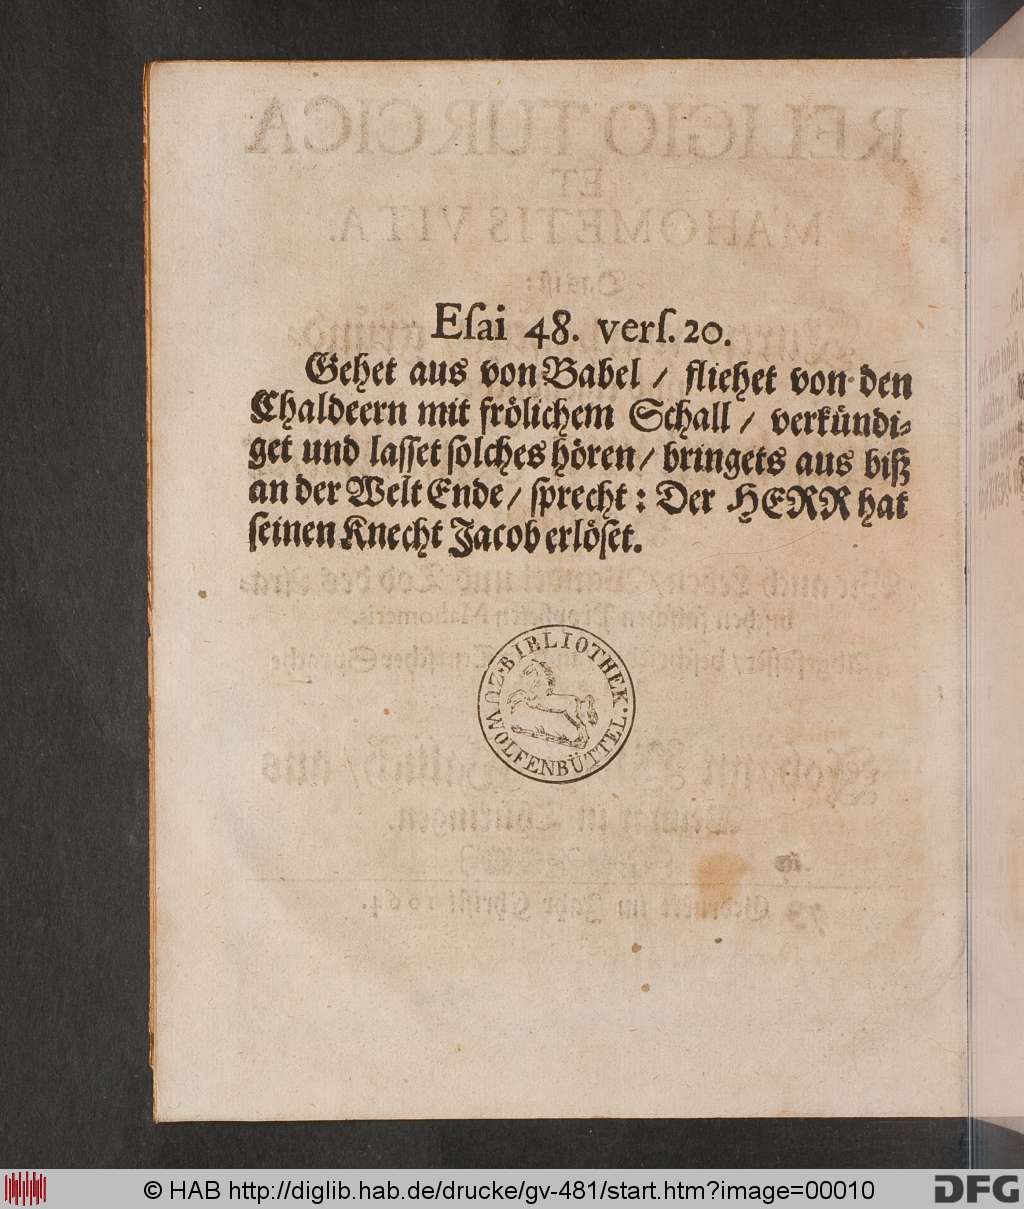 Eſai 48. verſ. 20.
Gehet aus von Babel / fliehet von den
Chaldeern mit frölichem Schall / verkündi-
get und laſſet ſolches hören / bringets aus biß
an der Welt Ende / ſprecht: Der HERR hat
ſeinen Knecht Jacob erlöſet.
BIBLIOTHEK.
ZU WOLFENBÜTTEL.
© HAB http://diglib.hab.de/drucke/gv-481/start.htm?image=00010
DFG